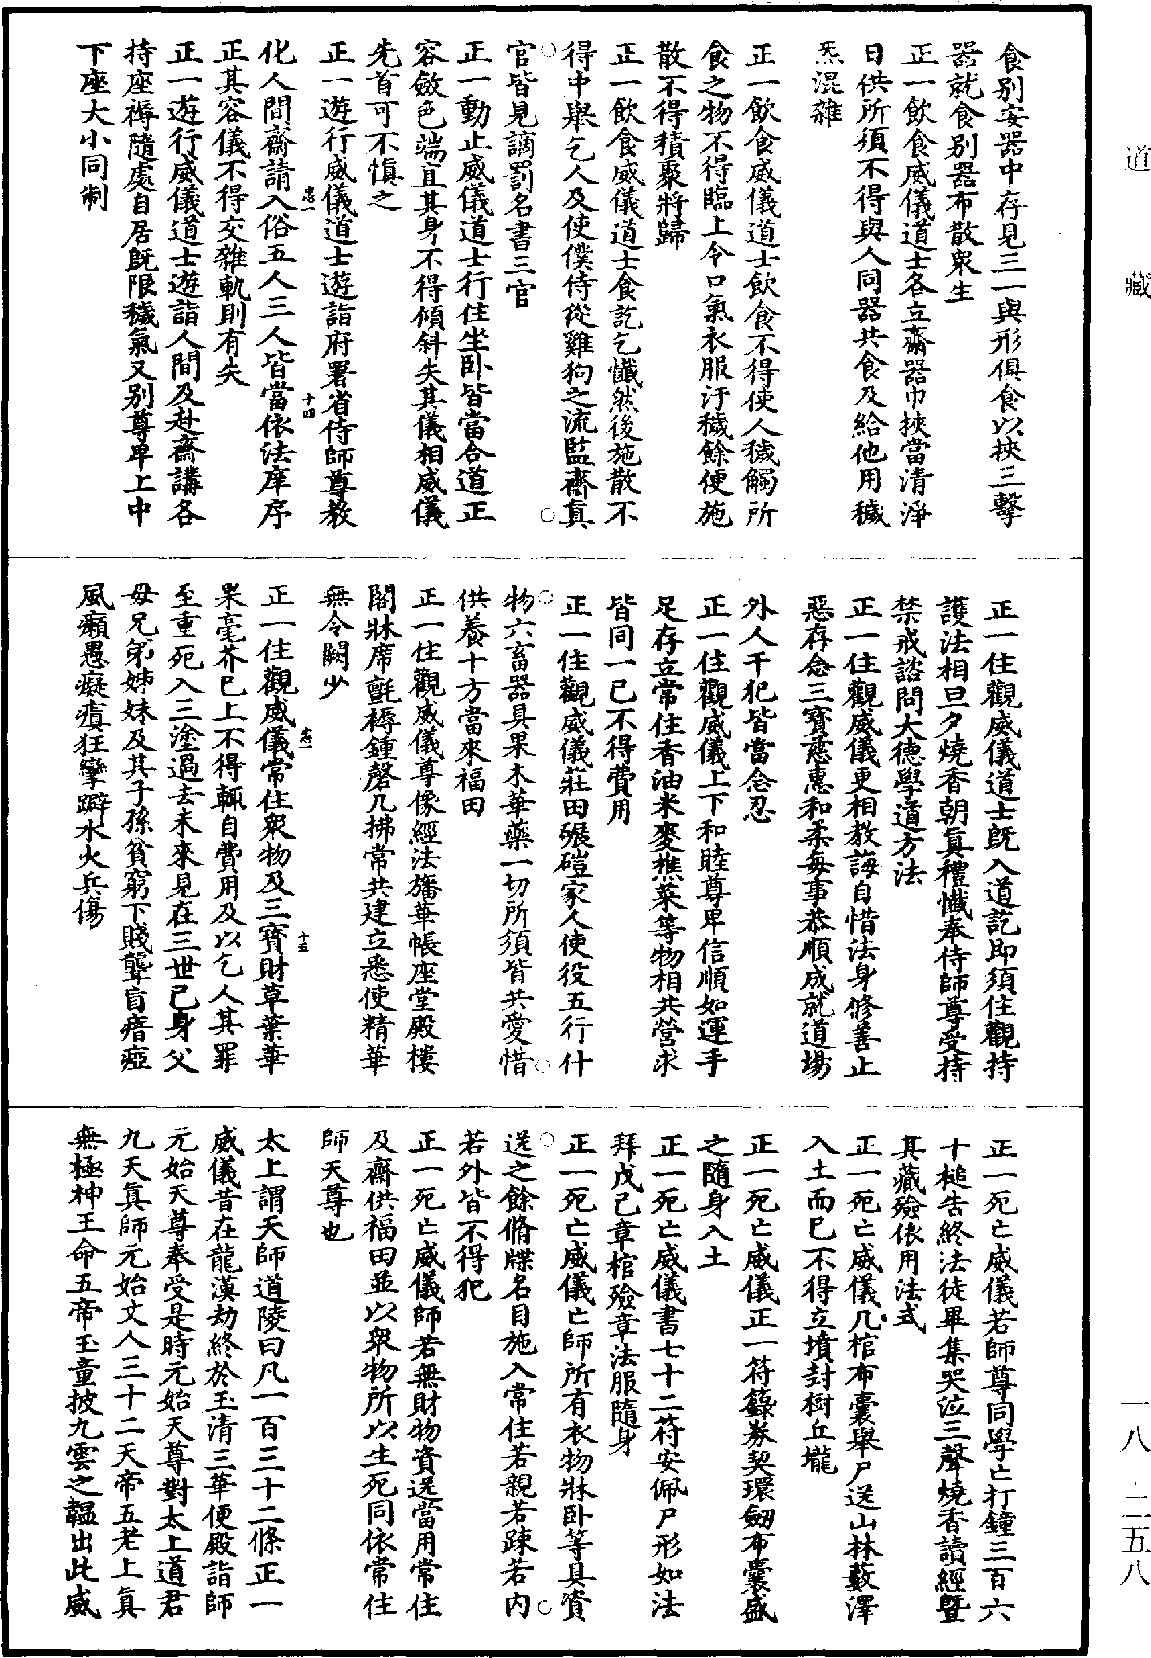 食別安器中存見三一與形俱食以挾三擊
器就食別器布散衆生
正一飲食威儀道士各立齋器巾挾當清淨
日供所須不得與人同器共食及給他用穢
炁混雜
正一飲食威儀道士飲食不得使人穢觸所
食之物不得臨上令口氣衣服汙穢餘便施
散不得積聚將歸
正一飲食威儀道士食訖乞懺然後施散不
得中舉乞人及使僕侍從雞狗之流監齋眞
官皆見謫罰名書三官
正一動止威儀道士行住坐卧皆當合道正
容斂色端直其身不得傾斜失其儀相威儀
先首可不慎之
正一遊行威儀道士遊詣府署省侍師尊教
化人間齋請入俗五人三人皆當依法庠序
正其容儀不得交雜軌則有失
正一遊行威儀道士遊詣人間及赴齋講各
持座褥隨處自居旣限穢氣又别尊卑上中
下座大小同制
正一住觀威儀道士旣入道訖即須住觀持
護法相旦夕燒香朝眞禮懺奉侍師尊受持
禁戒諮問大德學道方法
正一住觀威儀更相教誨自惜法身修善止
惡存念三寶慈惠和柔每事恭順成就道場
外人干犯皆當念忍
正一住觀威儀上下和睦尊卑信順如運手
足存立常住香油米麥樵菜等物相共營求
皆同一己不得費用
正一住觀威儀莊田碾磑家人使役五行什
物六畜器具果木華藥一切所須皆共愛惜
供養十方當來福田
正一住觀威儀尊像經法旛華帳座堂殿樓
閣牀席氈褥鍾磬几拂常共建立悉使精華
無令闕少
正一住觀威儀常住衆物及三寶財草葉華
果毫芥已上不得輒自費用及以乞人其罪
至重死入三塗過去未來見在三世已身父
母兄弟姊妹及其子孫貧窮下賤聾盲瘖瘂
風癲愚癡瘨狂攣躃水火兵傷
正一死亡威儀若師尊同學亡打鐘三百六
十槌告終法徒畢集哭泣三聲燒香讀經曁
其藏殮依用法式
正一死亡威儀几棺布囊舉尸送山林藪澤
入土而已不得立墳封樹丘壠
正一死亡威儀正一符籙券契環劒布囊盛
之隨身入土
正一死亡威儀書七十二符安佩尸形如法
拜戊己章棺殮章法服隨身
正一死亡威儀亡師所有衣物牀卧等具資
送之餘脩牒名目施入常住若親若踈若内
若外皆不得犯
正一死亡威儀師若無財物資送當用常住
及齋供福田並以衆物所以生死同依常住
師天尊也
太上謂天師道陵曰凡一百三十二條正一
威儀昔在龍漢劫終於玉清三華便殿詣師
元始天尊奉受是時元始天尊對太上道君
九天眞師元始丈人三十二天帝五老上眞
無極神王命五帝玉童披九雲之韞出此威
道藏
一八·二五八